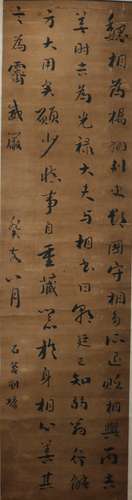 魏相為揚州刺史郡國守相多所貶相與丙吉
善時吉為光祿大夫與相書曰朝廷已知弱翁行能
方大用矣願少慎事自重藏器於身相心善其
言為霽威嚴 癸亥八月 石菴劉墉